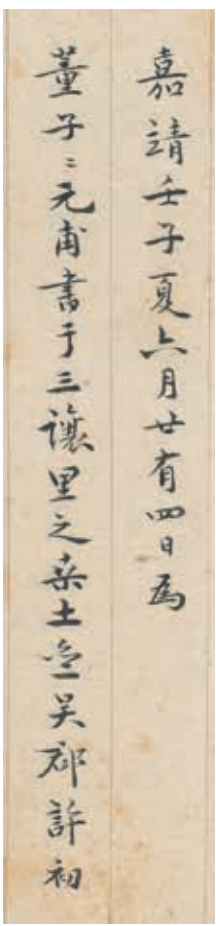 嘉靖壬子夏六月廿有四日為
董子〻元甫書于三讓里之桒土亝吴郡許初